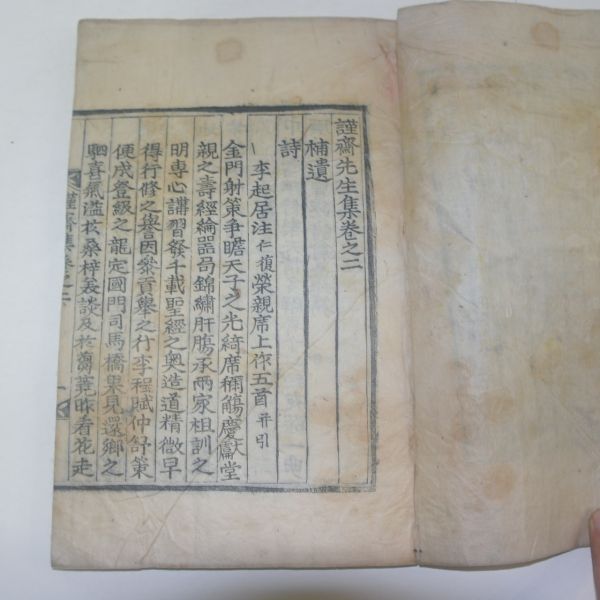 謹齋先生集卷之二
補遺
詩
李起居注仁復榮親席上作五首并引
金門射策爭瞻天子之光綺席稱觴慶獻堂
親之壽經綸器局錦繡肝膓承兩家祖訓之
明專心講習發千載聖經之奥造道精微早
得行修之譽因衆貢舉之行李程賦仲舒策
便成登級之龍定國門司馬橋果見還鄉之
駟喜氣溢扵桑梓美談及扵蒭蕘昨看花走
謹齋集卷之二
一